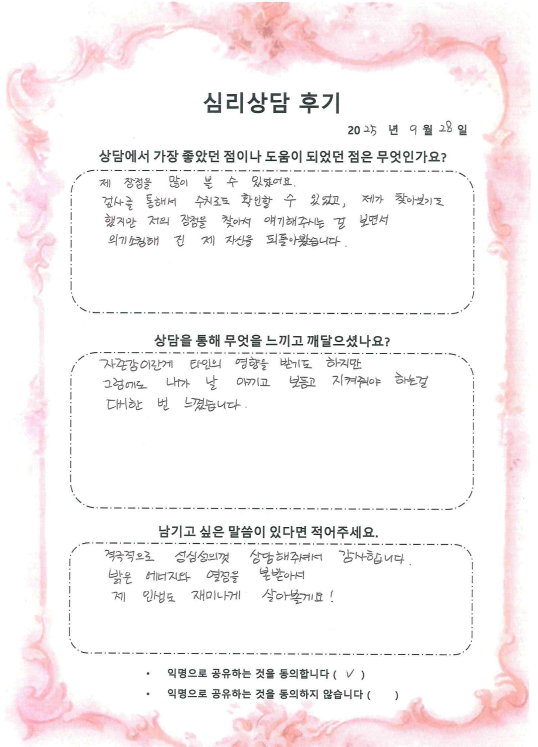 심리상담 후기
2025 년 9 월 28 일
상담에서 가장 좋았던 점이나 도움이 되었던 점은 무엇인가요?
제 장점을 많이 볼 수 있었어요.
검사를 통해서 수치로도 확인할 수 있었고, 제가 찾아보기도
했지만 저의 장점을 찾아서 얘기해주시는 걸 보면서
의기소침해 진 제 자신을 되돌아봤습니다.
상담을 통해 무엇을 느끼고 깨달으셨나요?
자존감이란게 타인의 영향을 받기도 하지만
그럼에도 내가 날 아끼고 보듬고 지켜줘야 하는걸
다시한 번 느꼈습니다.
남기고 싶은 말씀이 있다면 적어주세요.
적극적으로 성심성의껏 상담해주셔서 감사합니다.
밝은 에너지와 열정을 본받아서
제 인생도 재미나게 살아볼게요!
• 익명으로 공유하는 것을 동의합니다 ( √ )
• 익명으로 공유하는 것을 동의하지 않습니다 ( )